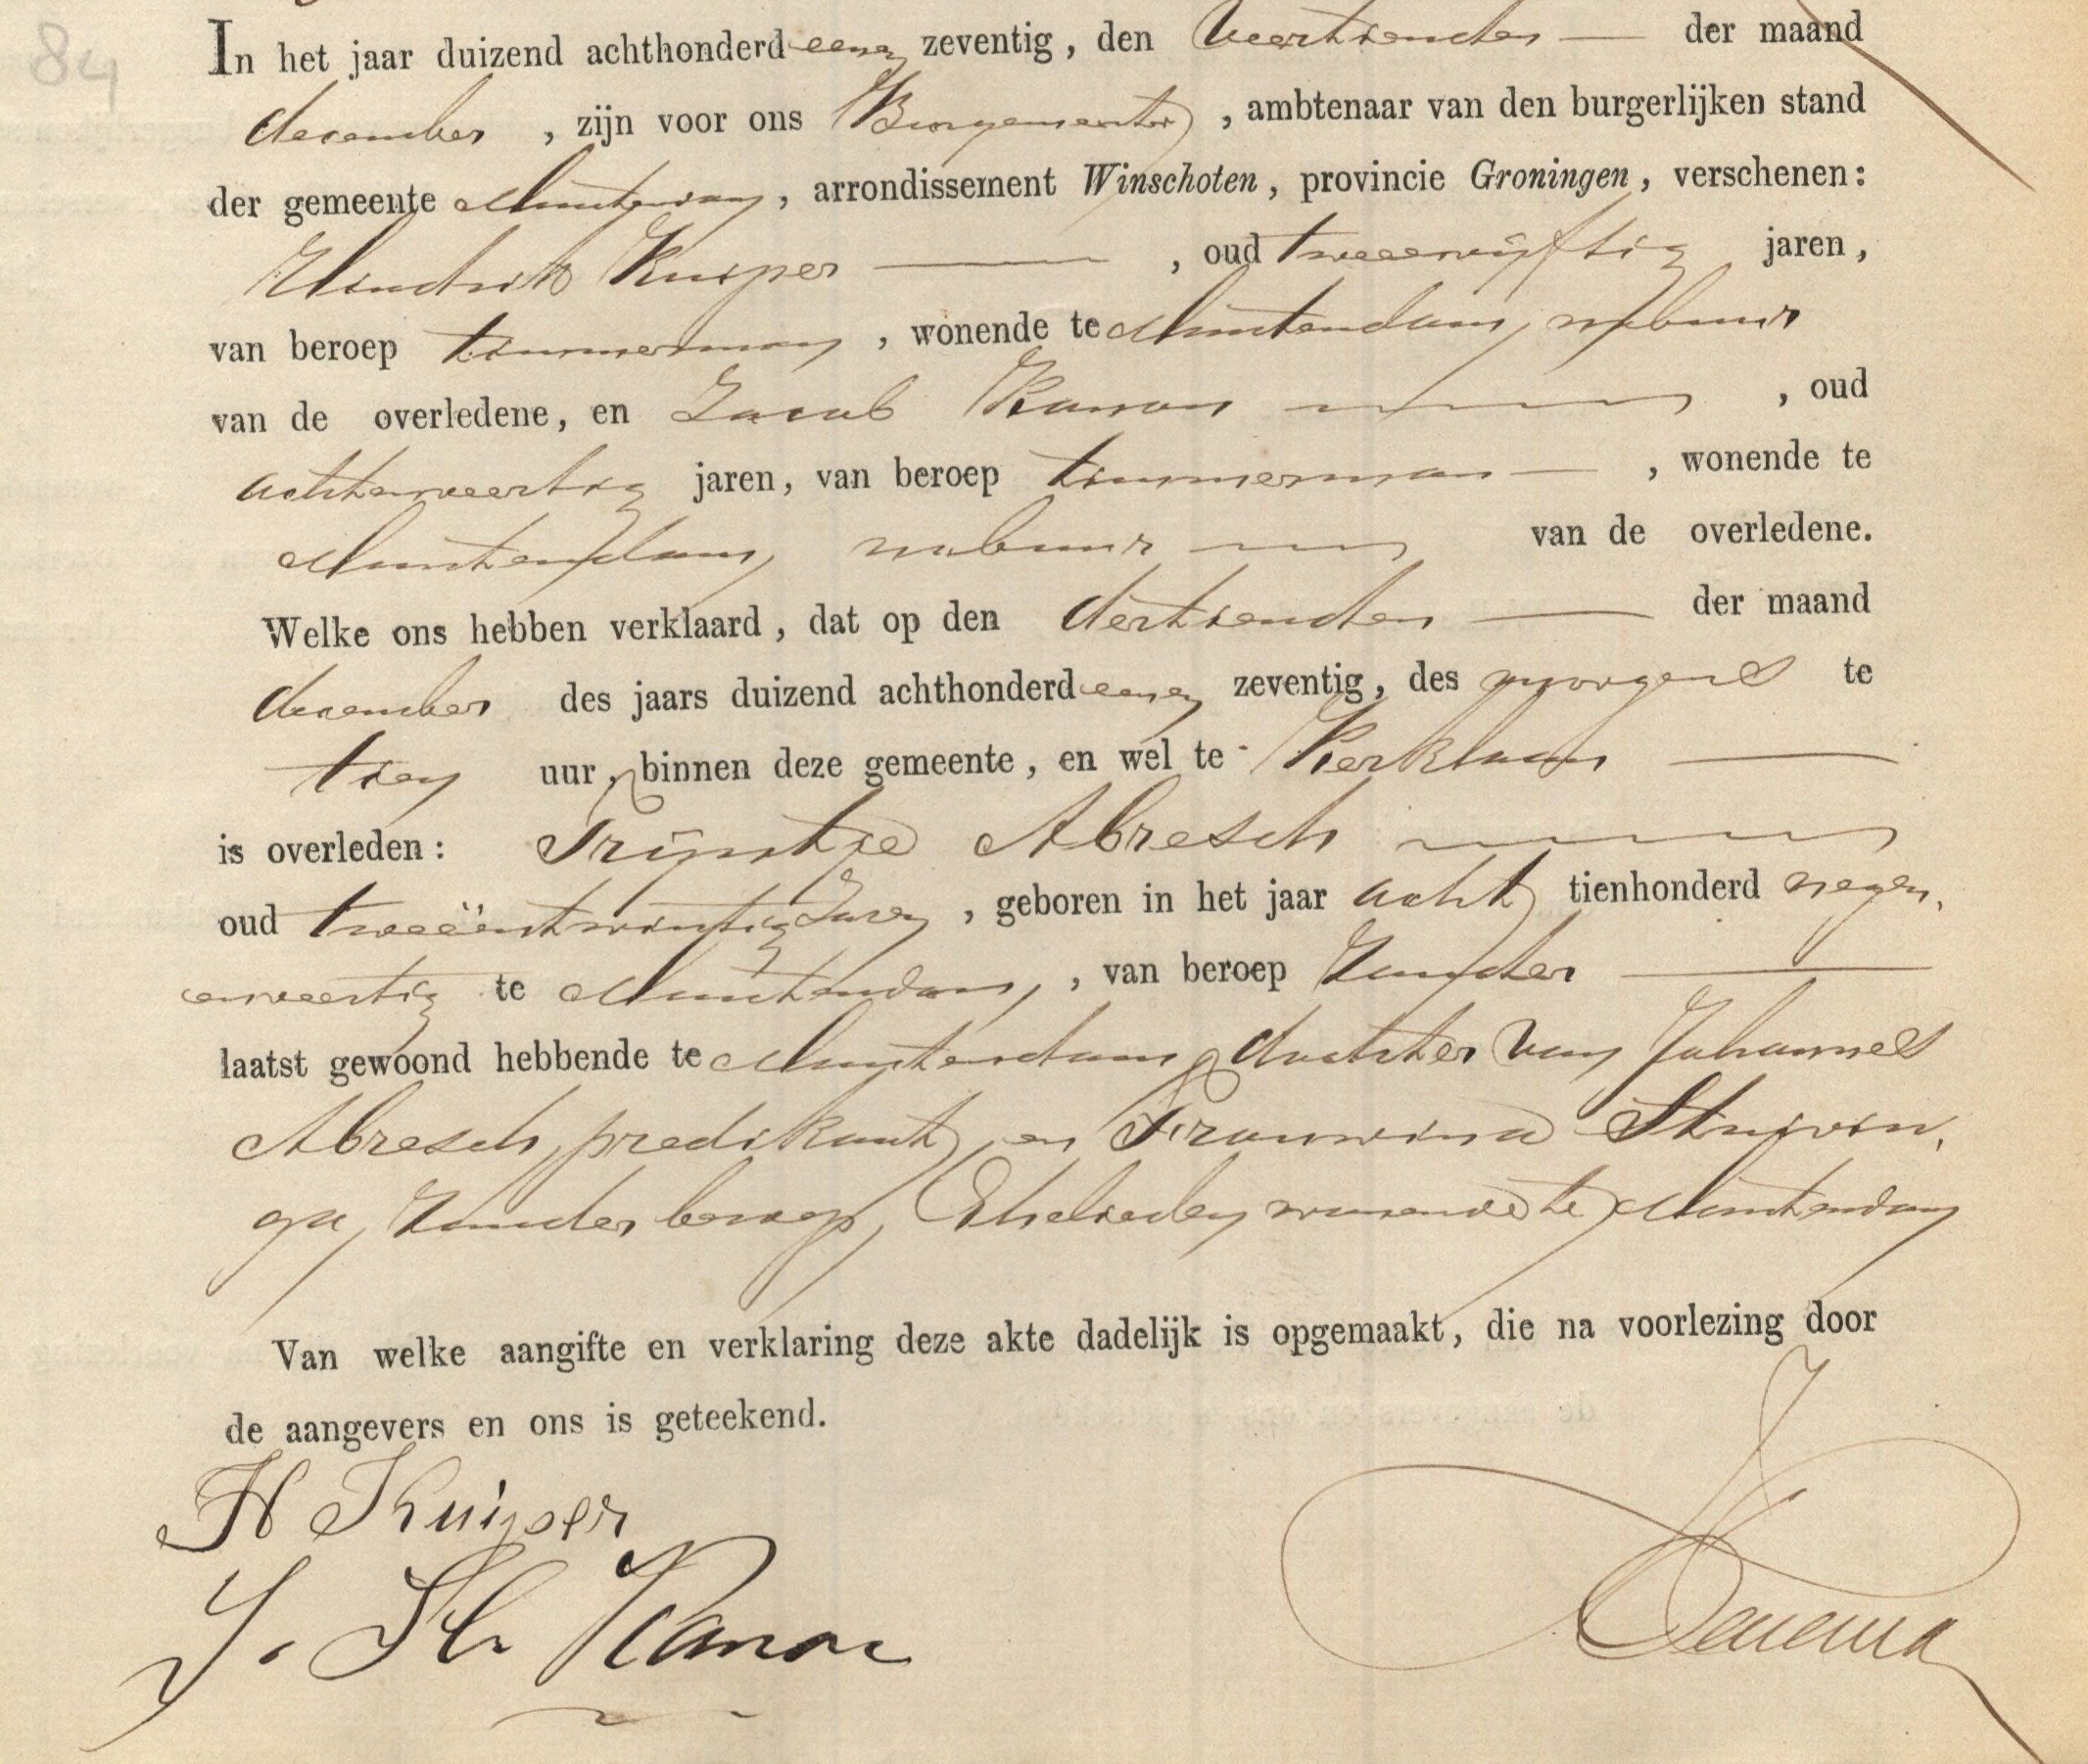 84
In het jaar duizend achthonderd eenen zeventig, den veertienden der maand
december, zijn voor ons Burgemeester, ambtenaar van den burgerlijken stand
der gemeente Muntendam, arrondissement Winschoten, provincie Groningen, verschenen:
Hindrik Kuiper, oud tweeenvijftig jaren,
van beroep timmerman, wonende te Muntendam, nabuur
van de overledene, en Jacob Kanon, oud
achtenveertig jaren, van beroep timmerman, wonende te
Muntendam, nabuur van de overledene.
Welke ons hebben verklaard, dat op den dertienden der maand
december des jaars duizend achthonderd eenen zeventig, des morgens te
tien uur, binnen deze gemeente, en wel te Kerklaan
is overleden: Trijntje Abresch
oud tweeëntwintig Jaren, geboren in het jaar acht tienhonderd negen,
enveertig te Muntendam, van beroep Zonder
laatst gewoond hebbende te Muntendam, dochter van Johannes
Abresch, predikant, en Frouwina Stuivin,
ga, Zonder beroep, Ehelieden wonende te Muntendam
Van welke aangifte en verklaring deze akte dadelijk is opgemaakt, die na voorlezing door
de aangevers en ons is geteekend.
H Kuiper
J. Kanon
Venema